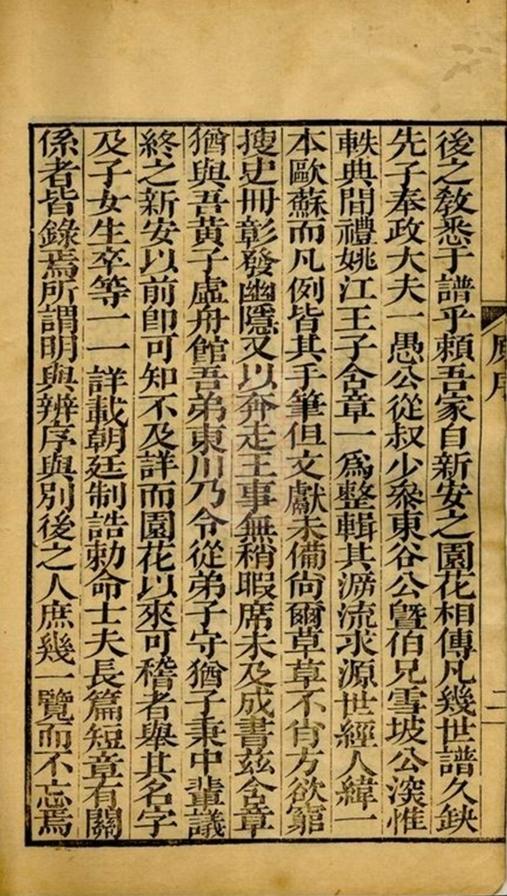 原序
二
後之敎悉于譜乎頼吾家自新安之園花相傳凡幾世譜久缺
先子奉政大夫一愚公從叔少叅東谷公曁伯兄雪坡公深惟
軼典間禮姚江王子含章一爲整輯其泝流求源世經人緯一
本歐蘇而凡例皆其手筆但文獻未備尙爾草草不肖方欲窮
搜史冊彰發幽隱又以奔走王事無稍暇席未及成書茲含章
猶與吾黄子虛舟館吾弟東川乃令從弟子守猶子秉中輩議
終之新安以前卽可知不及詳而園花以來可稽者舉其名字
及子女生卒等一一詳載朝廷制誥勅命士夫長篇短章有關
係者皆錄焉所謂明與辨序與別後之人庶幾一覽而不忘焉